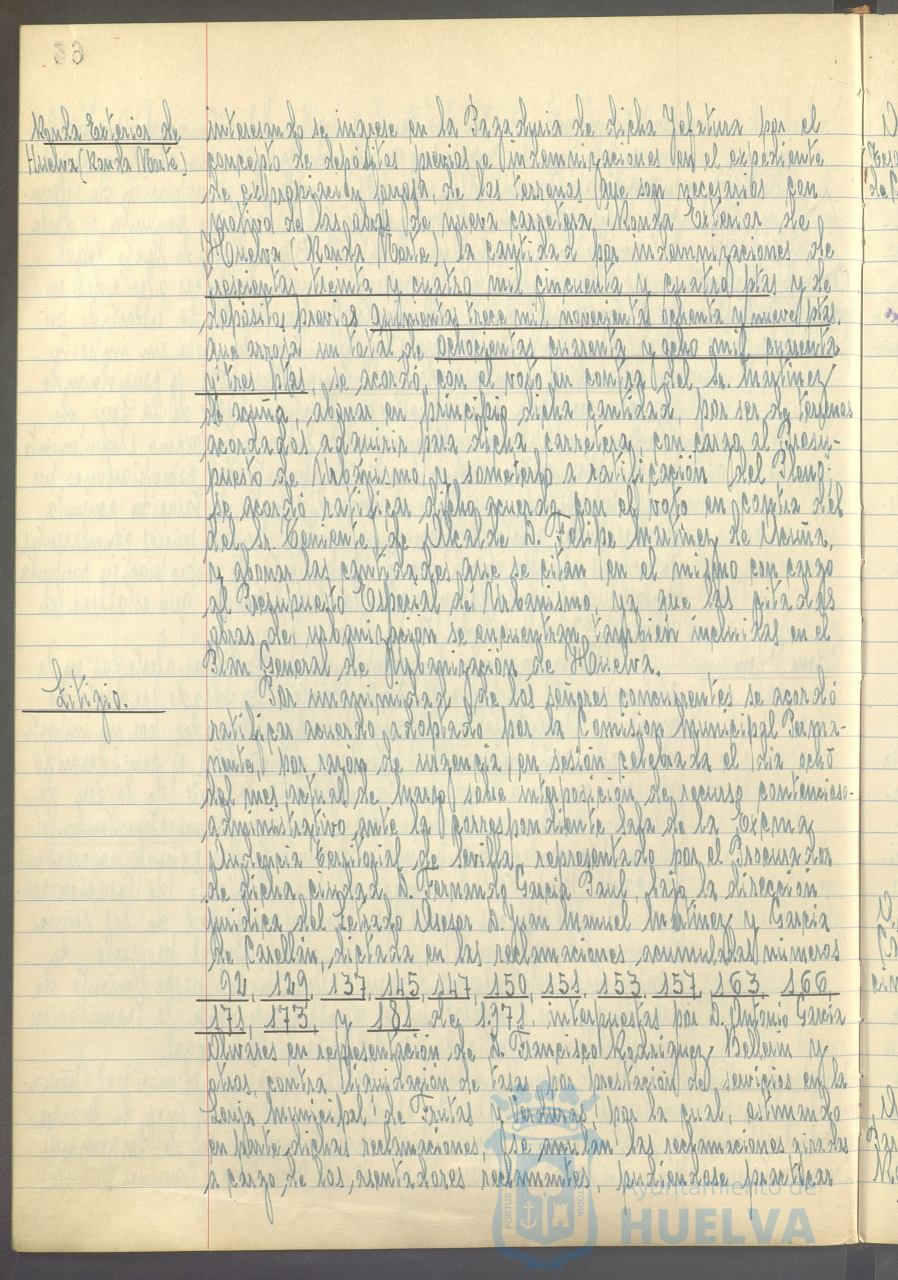 Ronda Exterior de
Huelva (Ronda Norte)
interesando se ingrese en la Pagaduria de dicha Jefatura por el
concepto de depósitos previos e indemnizaciones en el expediente
de expropiación forzosa de los terrenos que son necesarios con
motivo de las obras de nueva carretera Ronda Exterior de
Huelva (Ronda Norte), la cantidad por indemnizaciones de
trescientas treinta y cuatro mil cincuenta y cuatro ptas y de
depósito previos quinientas trece mil novecientas ochenta y nueve ptas.
que arroja un total de ochocientas cuarenta y ocho mil cuarenta
y tres ptas, se acordó, con el voto en contra del Sr. Martinez
de Acuña, abonar en principio dicha cantidad, por ser de terrenos
acordados adquirir para dicha carretera, con cargo al Presu-
puesto de Urbanismo, y someterlo a ratificación del Pleno;
se acordó ratificar dicho acuerdo con el voto en contra del
del Sr. Teniente de Alcalde D. Felipe Martinez de Acuña,
y abonar las cantidades que se citan en el mismo con cargo
al Presupuesto Especial de Urbanismo, ya que las citadas
obras de urbanización se encuentran también incluidas en el
Plan General de Urbanización de Huelva.
Litigio.
Por unanimidad de los señores concurrentes se acordó
ratificar acuerdo adoptado por la Comision Municipal Perma-
nente, por razón de urgencia, en sesión celebrada el dia ocho
del mes actual de Marzo, sobre interposición de recurso contencioso-
administrativo ante la correspondiente Sala de la Excma
Audiencia Territorial de Sevilla, representado por el Procurador
de dicha ciudad D. Fernando Garcia Paul, bajo la dirección
juridica del Letrado Asesor D. Juan Manuel Martinez y Garcia
de Casellán, dictada en las reclamaciones acumuladas números
92, 129, 137, 145, 147, 150, 151, 153, 157, 163, 166
171, 173 y 181 de 1.971, interpuestas por D. Antonio Garcia
Olivares en representación de D. Francisco Rodriguez Bellerin y
otros, contra liquidación de tasas por prestación de servicios en la
Lonja Municipal de Frutas y Verduras, por la cual, estimando
en parte dichas reclamaciones, se anulan las reclamaciones giradas
a cargo de los asentadores reclamantes, pudiendose practicar
Ayuntamiento de
HUELVA